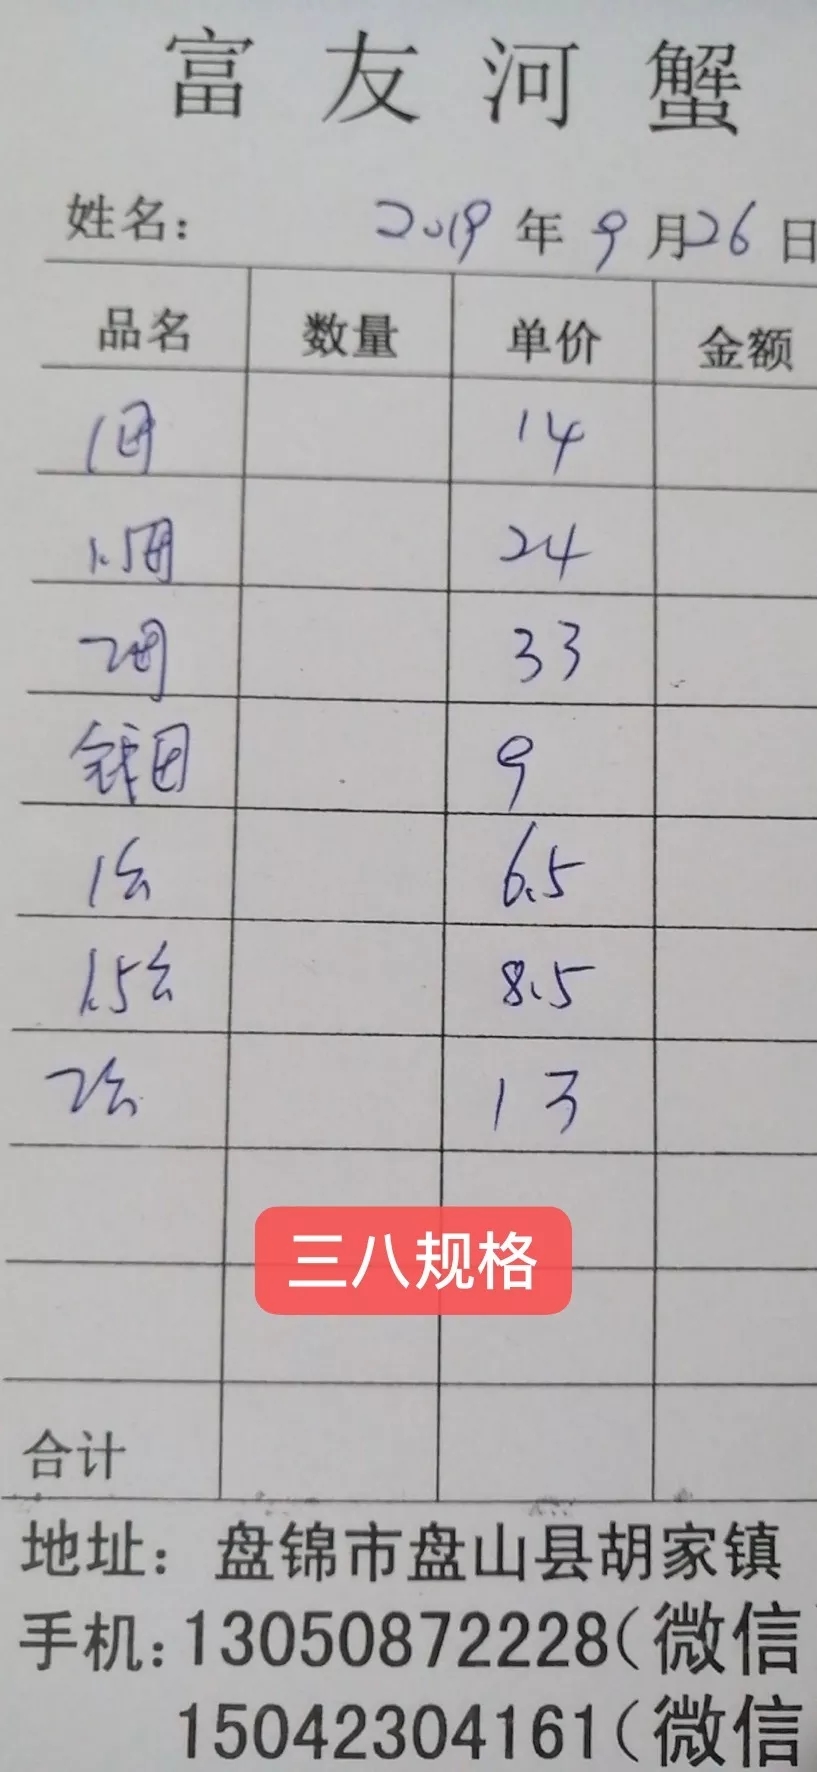 富友河蟹
姓名： 2019年9月26日
品名 数量 单价 金额
1团 14
1.5团 24
2团 33
钱团 9
1公 6.5
1.5公 8.5
2公 13
三八规格
合计
地址：盘锦市盘山县胡家镇
手机：13050872228（微信
15042304161（微信